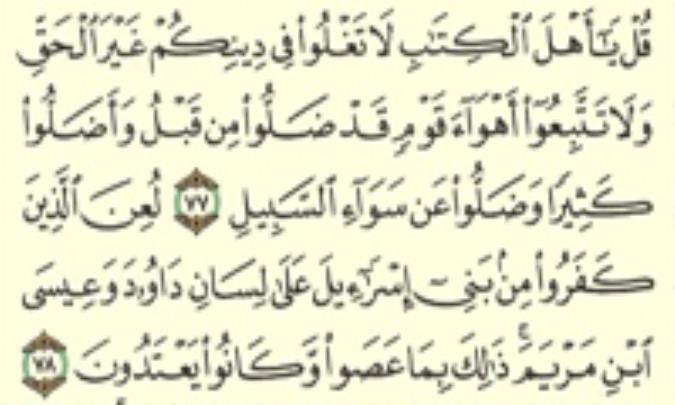 قُلْ يَٰٓأَهْلَ ٱلْكِتَٰبِ لَا تَغْلُوا۟ فِى دِينِكُمْ غَيْرَ ٱلْحَقِّ
وَلَا تَتَّبِعُوٓا۟ أَهْوَآءَ قَوْمٍ قَدْ ضَلُّوا۟ مِن قَبْلُ وَأَضَلُّوا۟
كَثِيرًا وَضَلُّوا۟ عَن سَوَآءِ ٱلسَّبِيلِ ٧٧ لُعِنَ ٱلَّذِينَ
كَفَرُوا۟ مِنۢ بَنِىٓ إِسْرَٰٓءِيلَ عَلَىٰ لِسَانِ دَاوُۥدَ وَعِيسَى
ٱبْنِ مَرْيَمَ ۚ ذَٰلِكَ بِمَا عَصَوا۟ وَّكَانُوا۟ يَعْتَدُونَ ٧٨